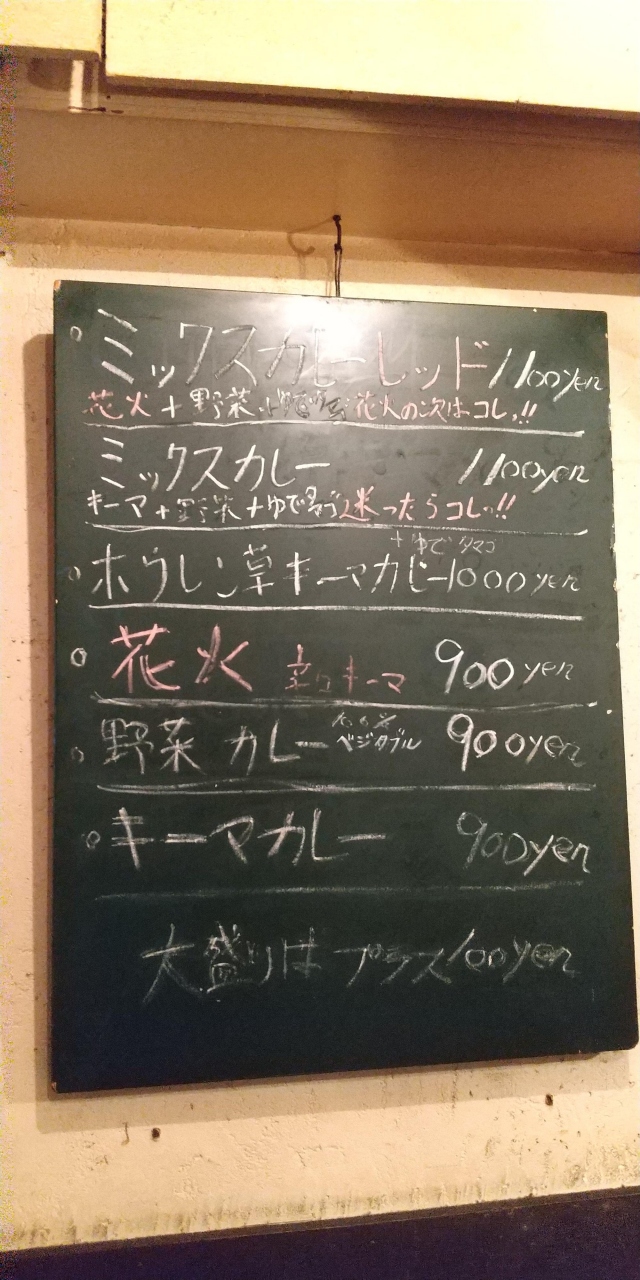 ミックスカレーレッド 1100yen
花火+野菜+ゆで 花火の次はコレッ!!
ミックスカレー 1100yen
キーマ+野菜+ゆで 迷ったらコレッ!!
+ゆでタマゴ
ホウレン草キーマカレー 1000yen
花火 辛口キーマ 900yen
野菜カレー ベジタブル 900yen
キーマカレー 900yen
大盛りはプラス100yen